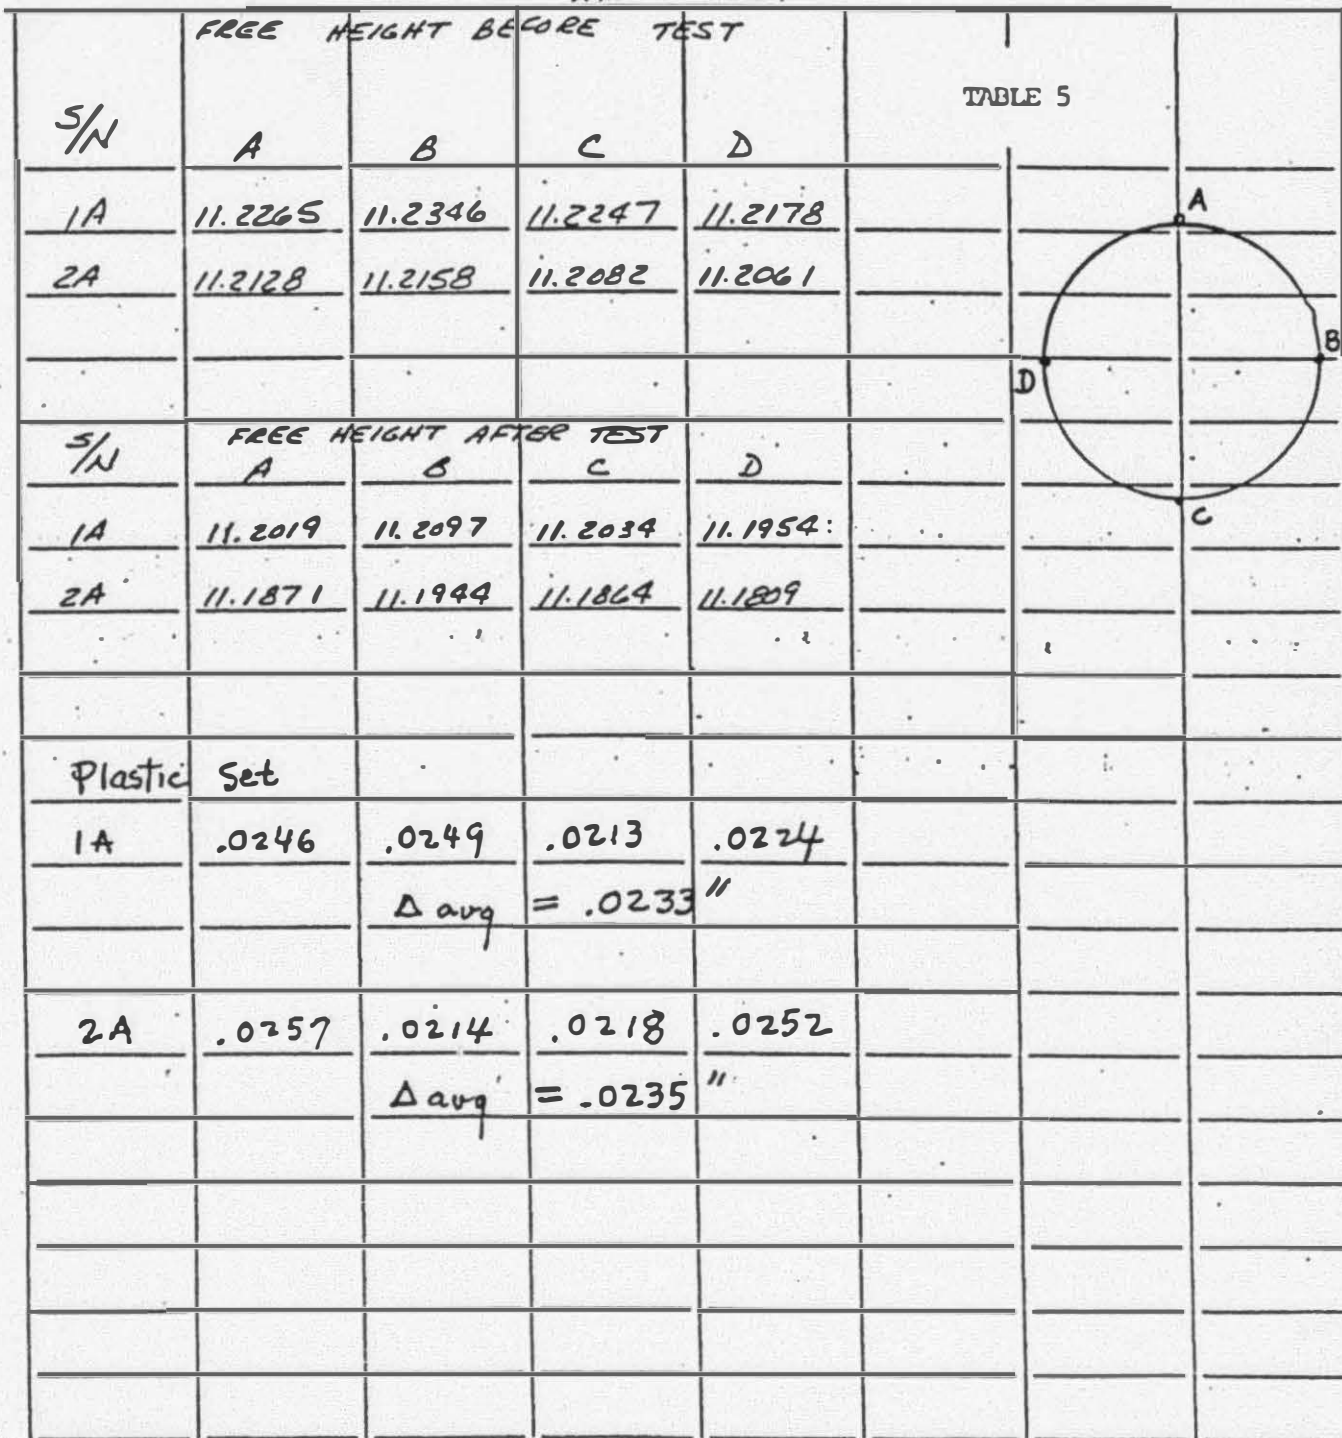 FREE HEIGHT BEFORE TEST
TABLE 5
S/N A B C D
1A 11.2265 11.2346 11.2247 11.2178
2A 11.2128 11.2158 11.2082 11.2061
A
B
D
C
FREE HEIGHT AFTER TEST
S/N A B C D
1A 11.2019 11.2097 11.2034 11.1954
2A 11.1871 11.1944 11.1864 11.1809
Plastic Set
1A .0246 .0249 .0213 .0224
Δ avg = .0233"
2A .0257 .0214 .0218 .0252
Δ avg = .0235"